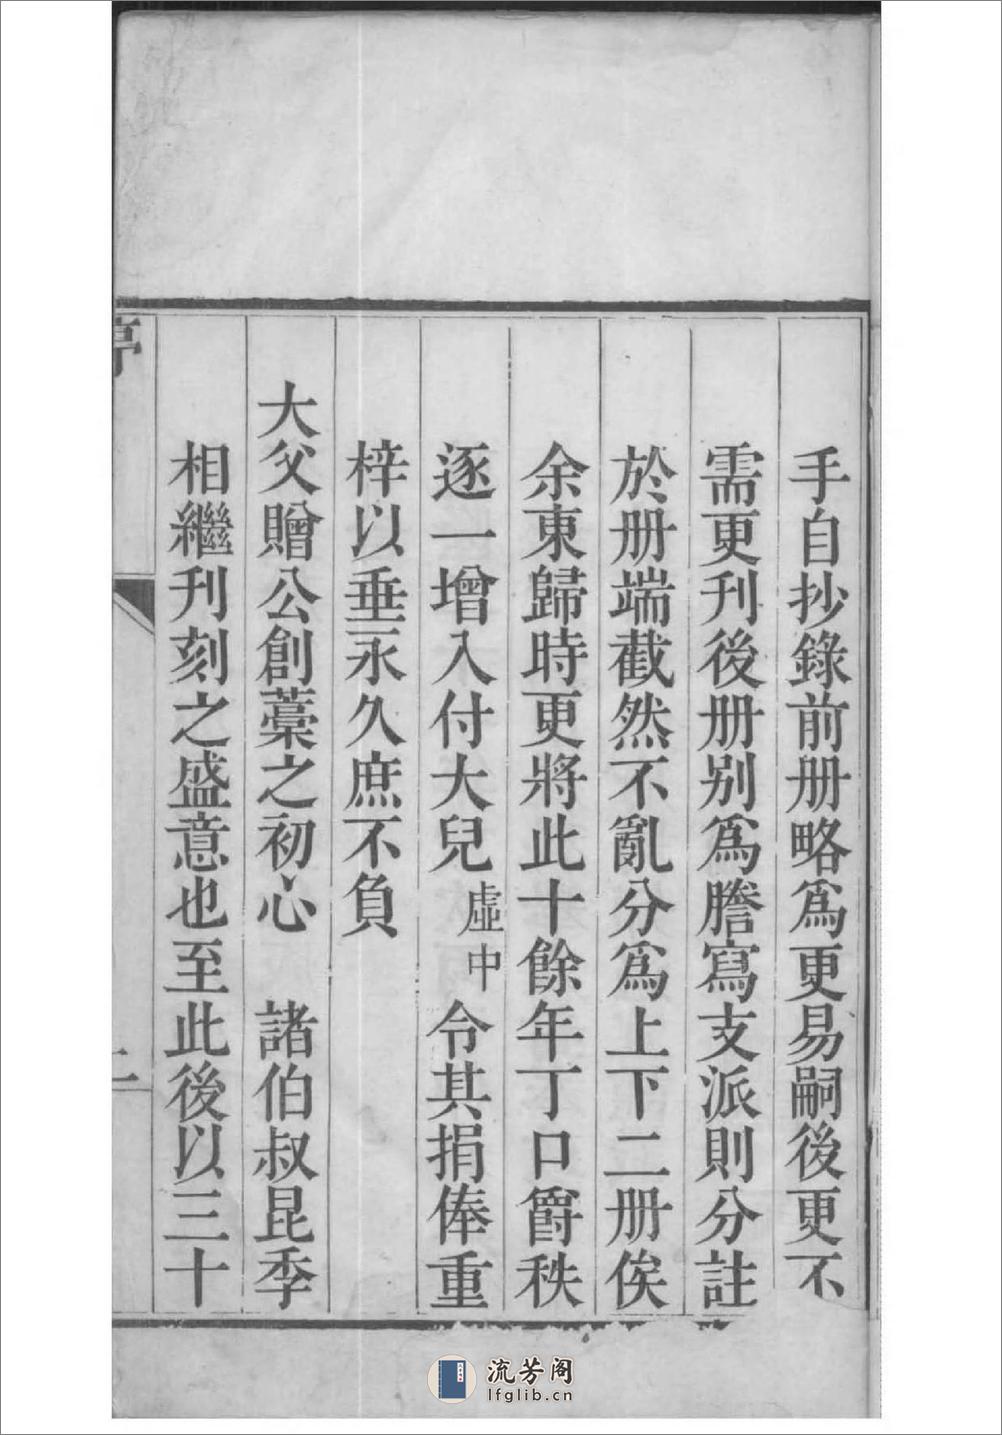 手自抄錄前册略爲更易嗣後更不
需更刋後册别爲謄寫支派則分註
於册端截然不亂分爲上下二册俟
余東歸時更將此十餘年丁口爵秩
逐一增入付大兒虛中令其捐俸重
梓以垂永久庶不負
大父贈公創藁之初心　諸伯叔昆季
相繼刋刻之盛意也至此後以三十
二
流芳阁
lfglib.cn